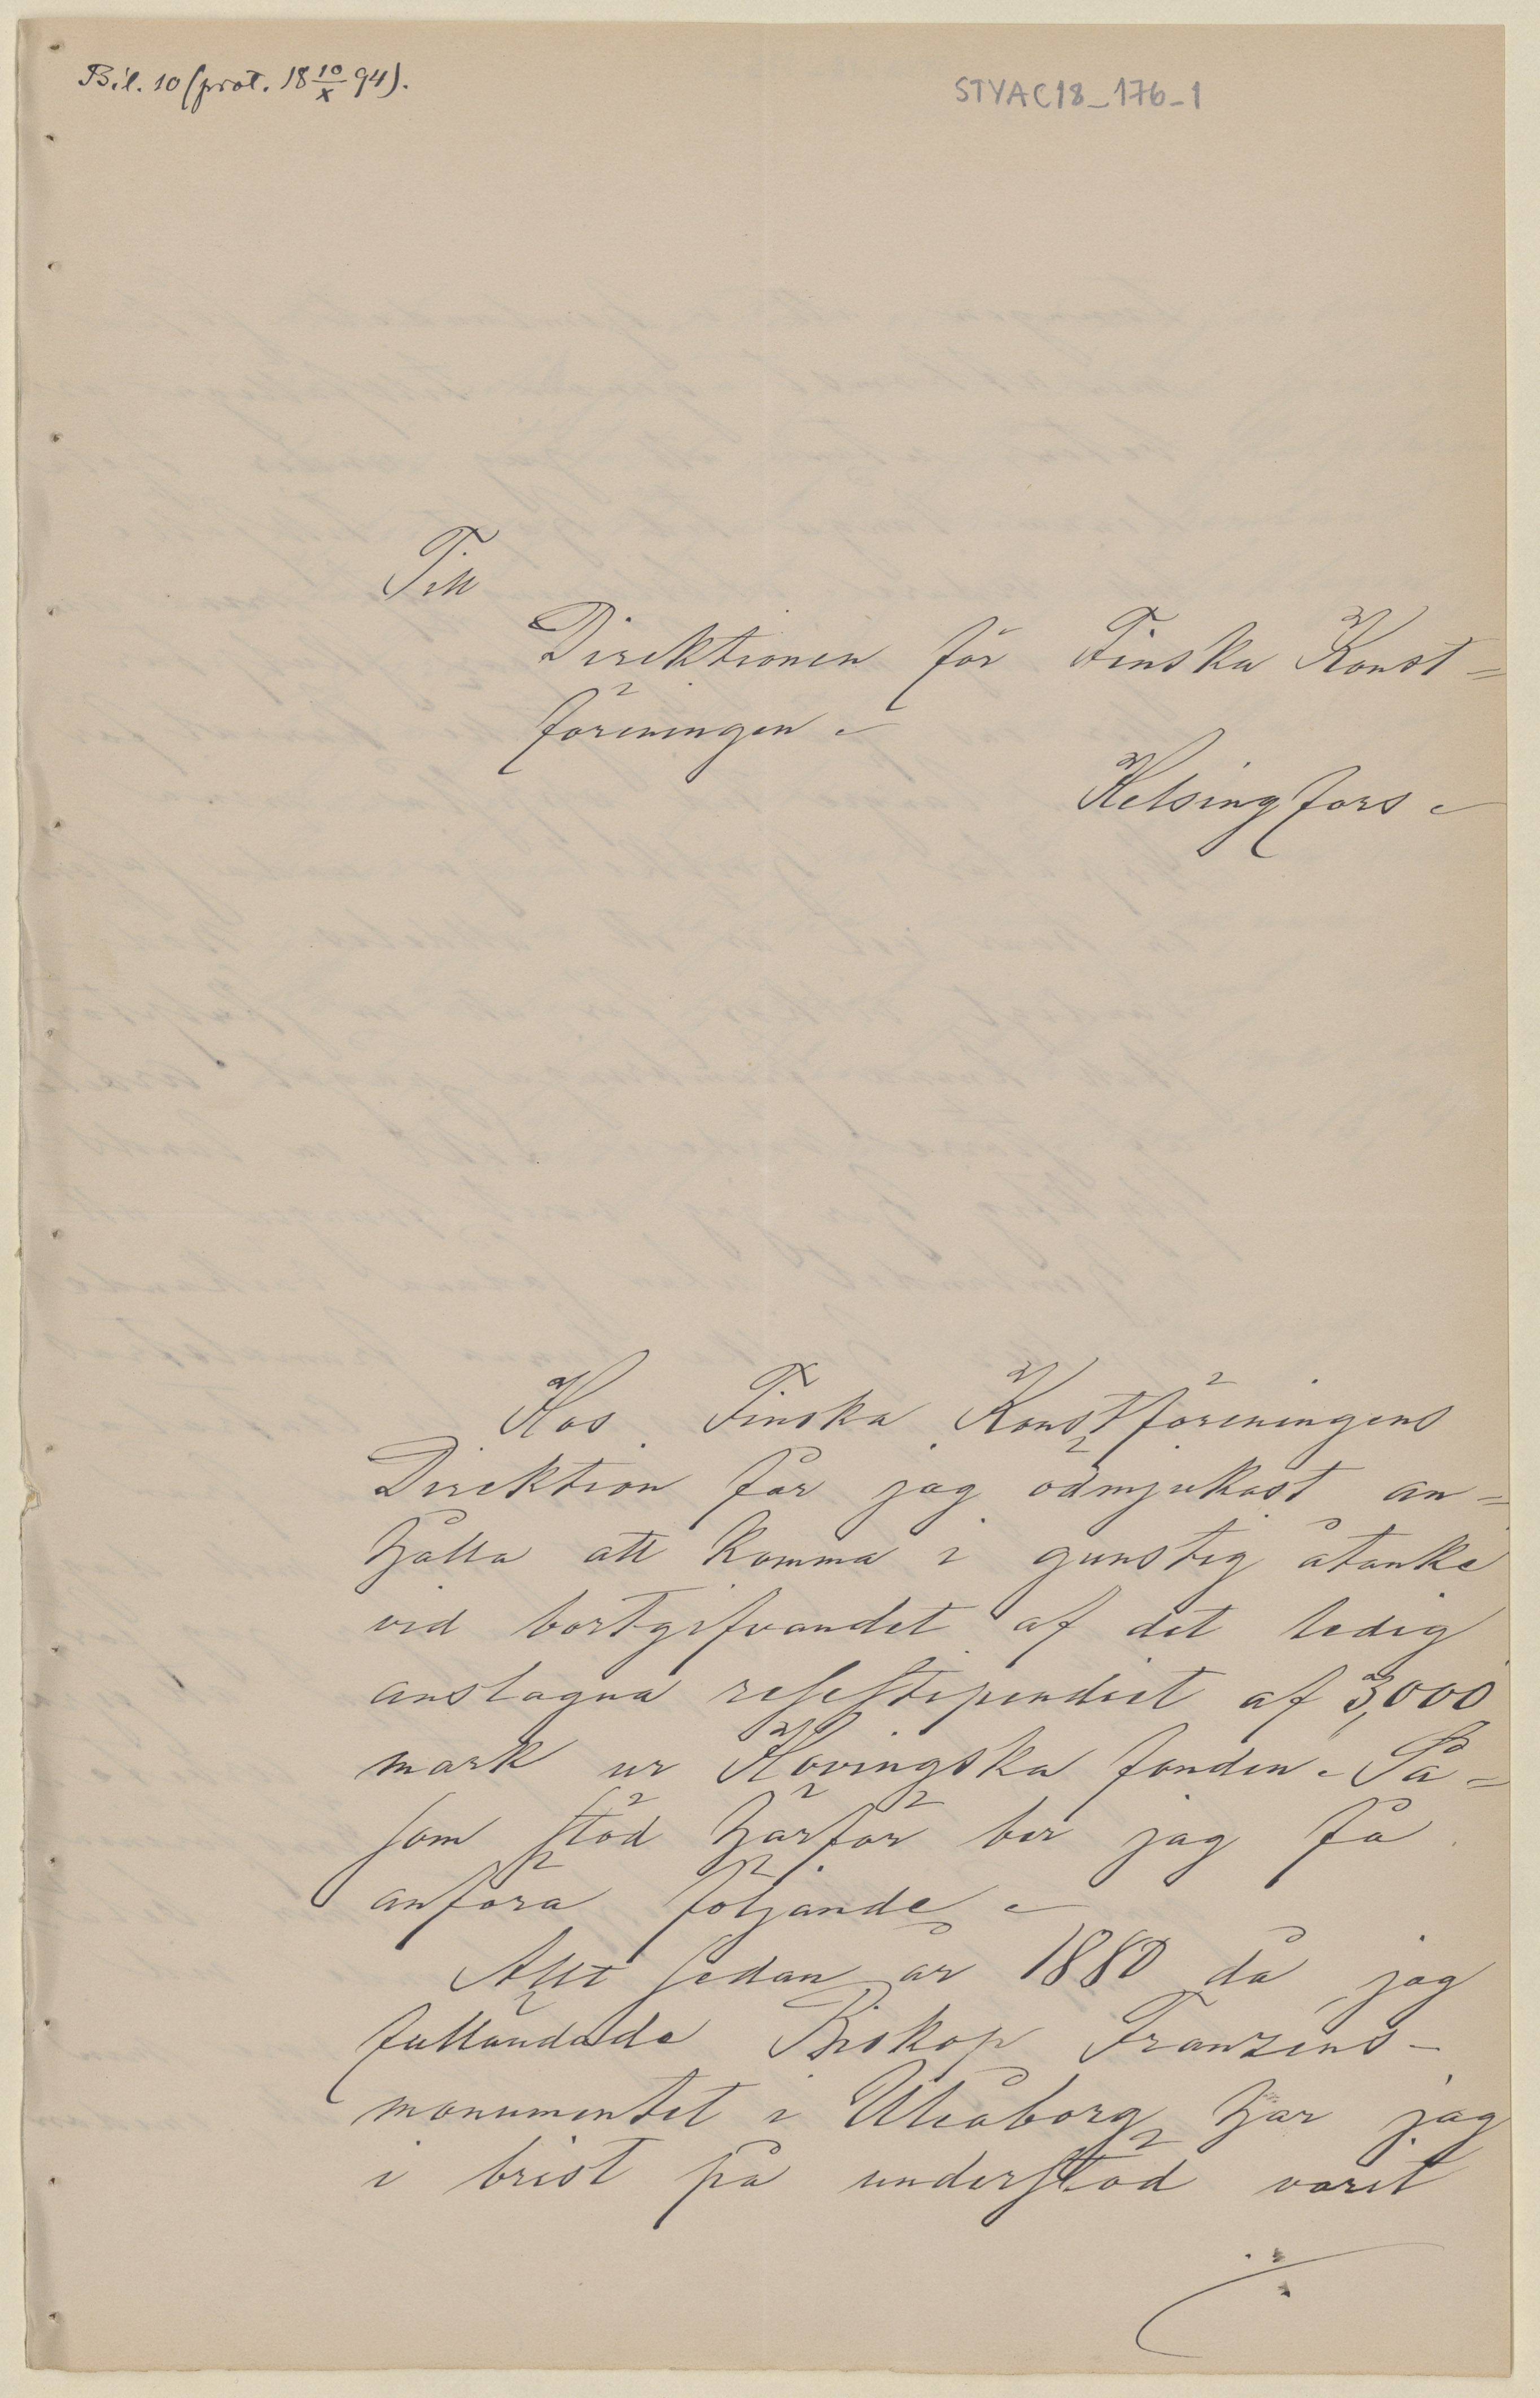 Bil. 10 (prot. 18 10/X 94).
STYAC18_176_1
Till
Direktionen för Finska Konst=
föreningen.
Helsingfors.
Hos Finska Konstföreningens
Direktion får jag ödmjukast an=
hålla att komma i gunstig åtanke
vid bortgifvandet af det ledig
anslagna resestipendiet af 3,000
mark ur Hovingska fonden. Så=
som stöd härför ber jag få
anföra följande.
Allt sedan år 1880 då jag
fulländade Biskop Franzéns-
monumentet i Uleåborg har jag
i brist på understöd varit